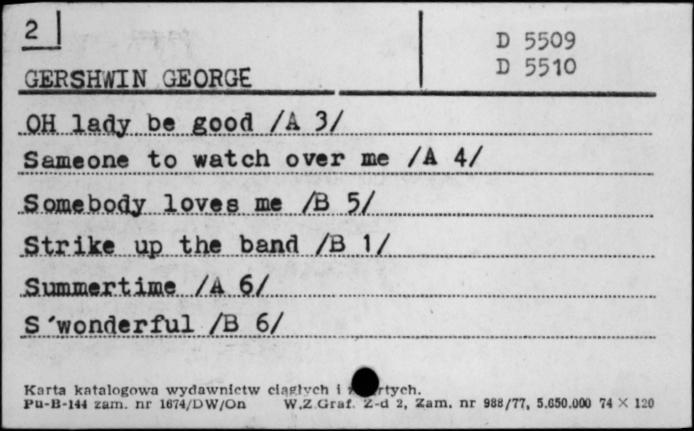 2
D 5509
D 5510
GERSHWIN GEORGE
OH lady be good /A 3/
Sameone to watch over me /A 4/
Somebody loves me /B 5/
Strike up the band /B 1/
Summertime /A 6/
S´wonderful /B 6/
Karta katalogowa wydawnictw ciągłych i
Pu-B-144 zam. nr 1674/DW/On W.Z.Graf. Z-d 2, Zam. nr 988/77, 5.650.000 74 × 120